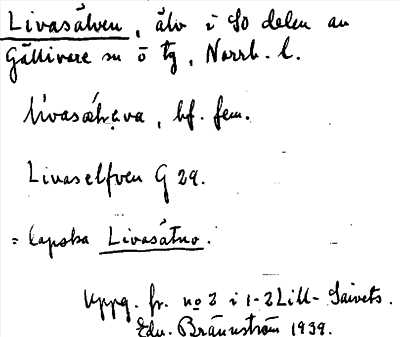 Livasälven, älv i SO delen av
Gällivare sn ö tg, Norrb. l.
lívasæ̀ḷvа, bf. fem.
Livaselfven G 29.
= lapska Livasätno.
Uppg. fr. no 2 i 1-2 Lill- Saivets.
Edv. Brännström 1939.